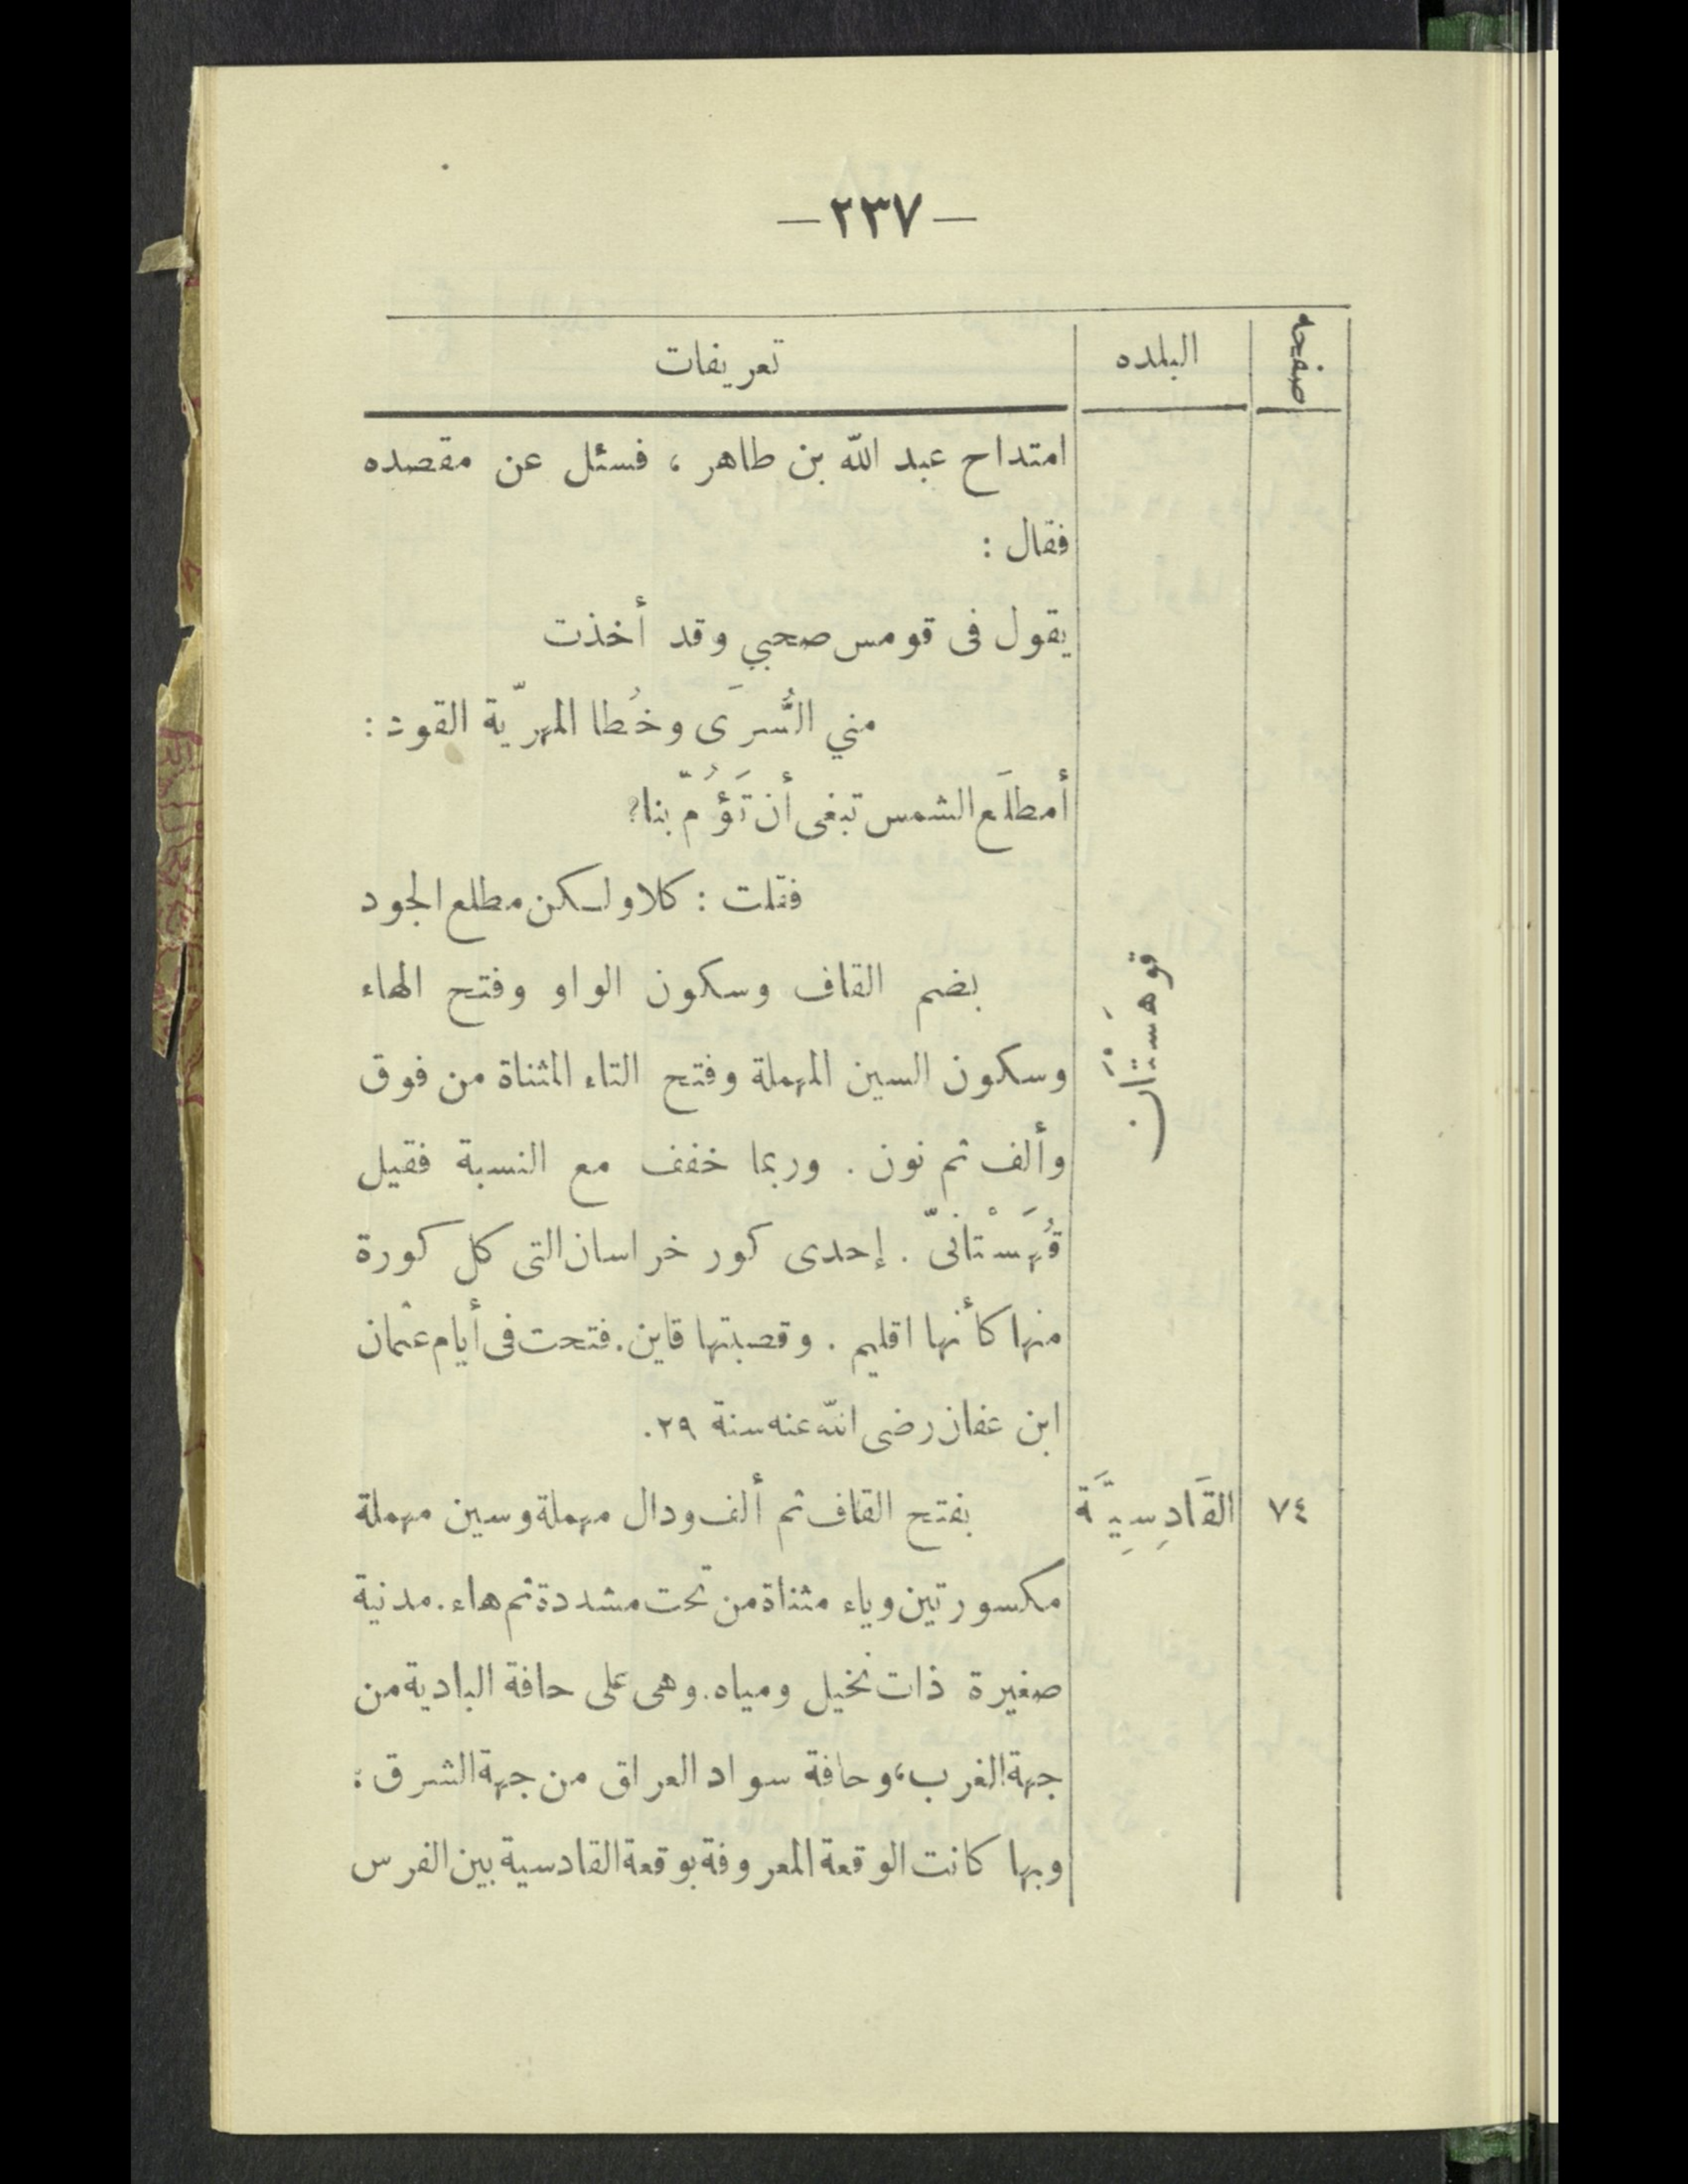 — ٢٣٧ —
صفحه البلده تعريفات
امتداح عبد الله بن طاهر ، فسئل عن مقصده
فقال :
يقول فى قومس صحبي وقد أخذت
مني السُّرَى وخُطا المهرّية القود :
أمطلَع الشمس تبغى أن تَؤُمّ بنا؟
فقلت : كلا ولكن مطلع الجود
قوهَسْتَان بضم القاف وسكون الواو وفتح الهاء
وسكون السين المهملة وفتح التاء المثناة من فوق
وألف ثم نون . وربما خفف مع النسبة فقيل
قُهَسْتانىّ . إحدى كور خراسان التى كل كورة
منها كأنها اقليم . وقصبتها قاين. فتحت فى أيام عثمان
ابن عفان رضى الله عنه سنة ٢٩.
٧٤ القَادِسِيَّة بفتح القاف ثم ألف ودال مهملة وسين مهملة
مكسورتين وياء مثناة من تحت مشددة ثم هاء. مدنية
صغيرة ذات نخيل ومياه. وهى على حافة البادية من
جهة الغرب، وحافة سواد العراق من جهة الشرق :
وبها كانت الوقعة المعروفة بوقعة القادسية بين الفرس